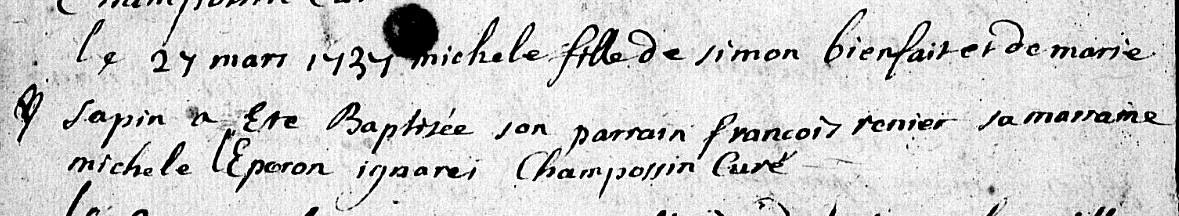 le 27 mars 1737 michele fille de simon bienfait et de marie
sapin a Ete Baptisée son parrain francois renier sa marraine
michele l'Eperon ignares Champossin Curé